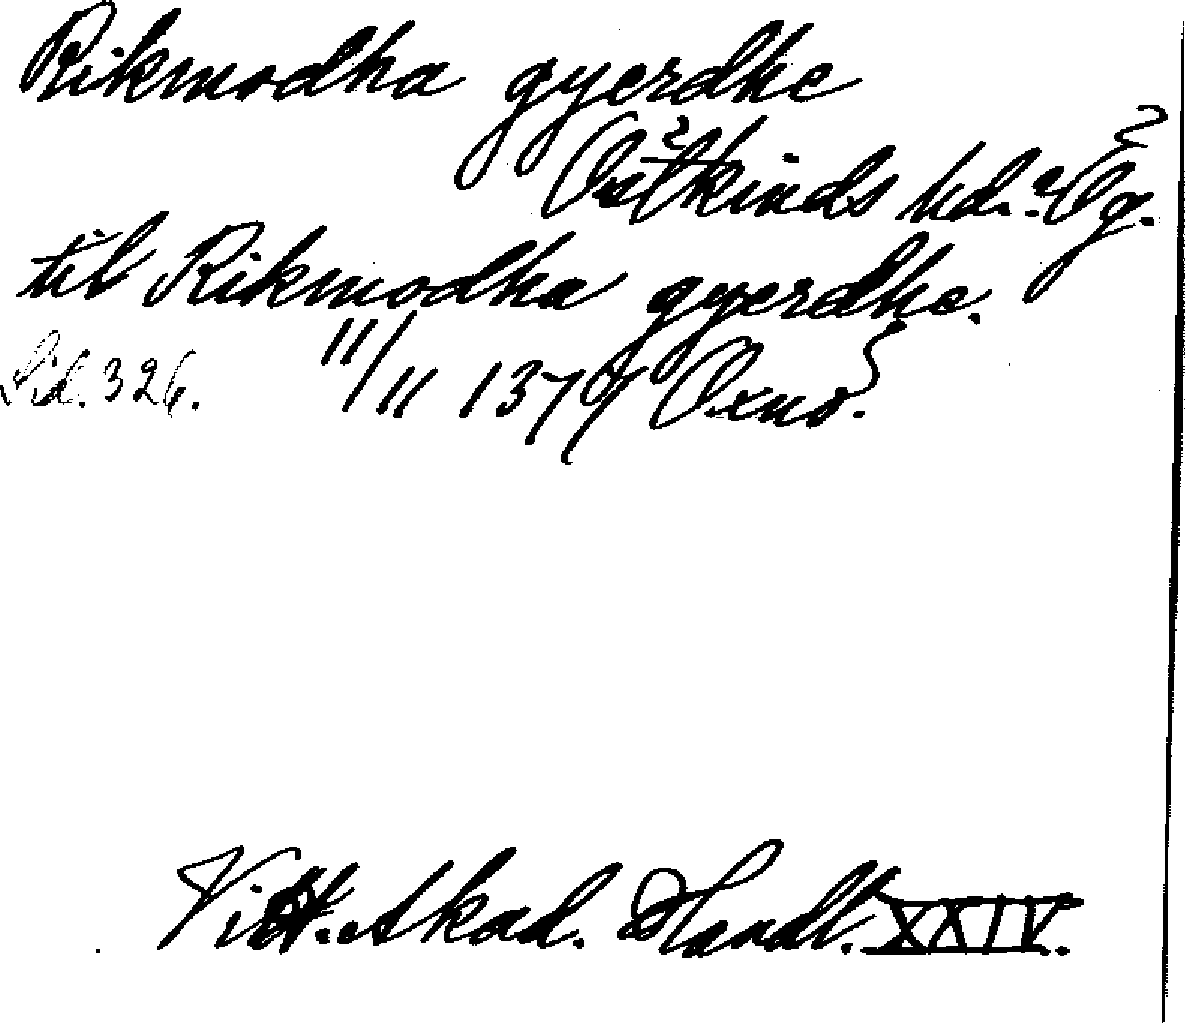 Rikmodha gyerdhe
Östkinds hd. Ög.
til Rikmodha gyerdhe.
Sid. 326. 11/11 1377 Öxnö.
Vitt. Akad. Handl. XXIV.